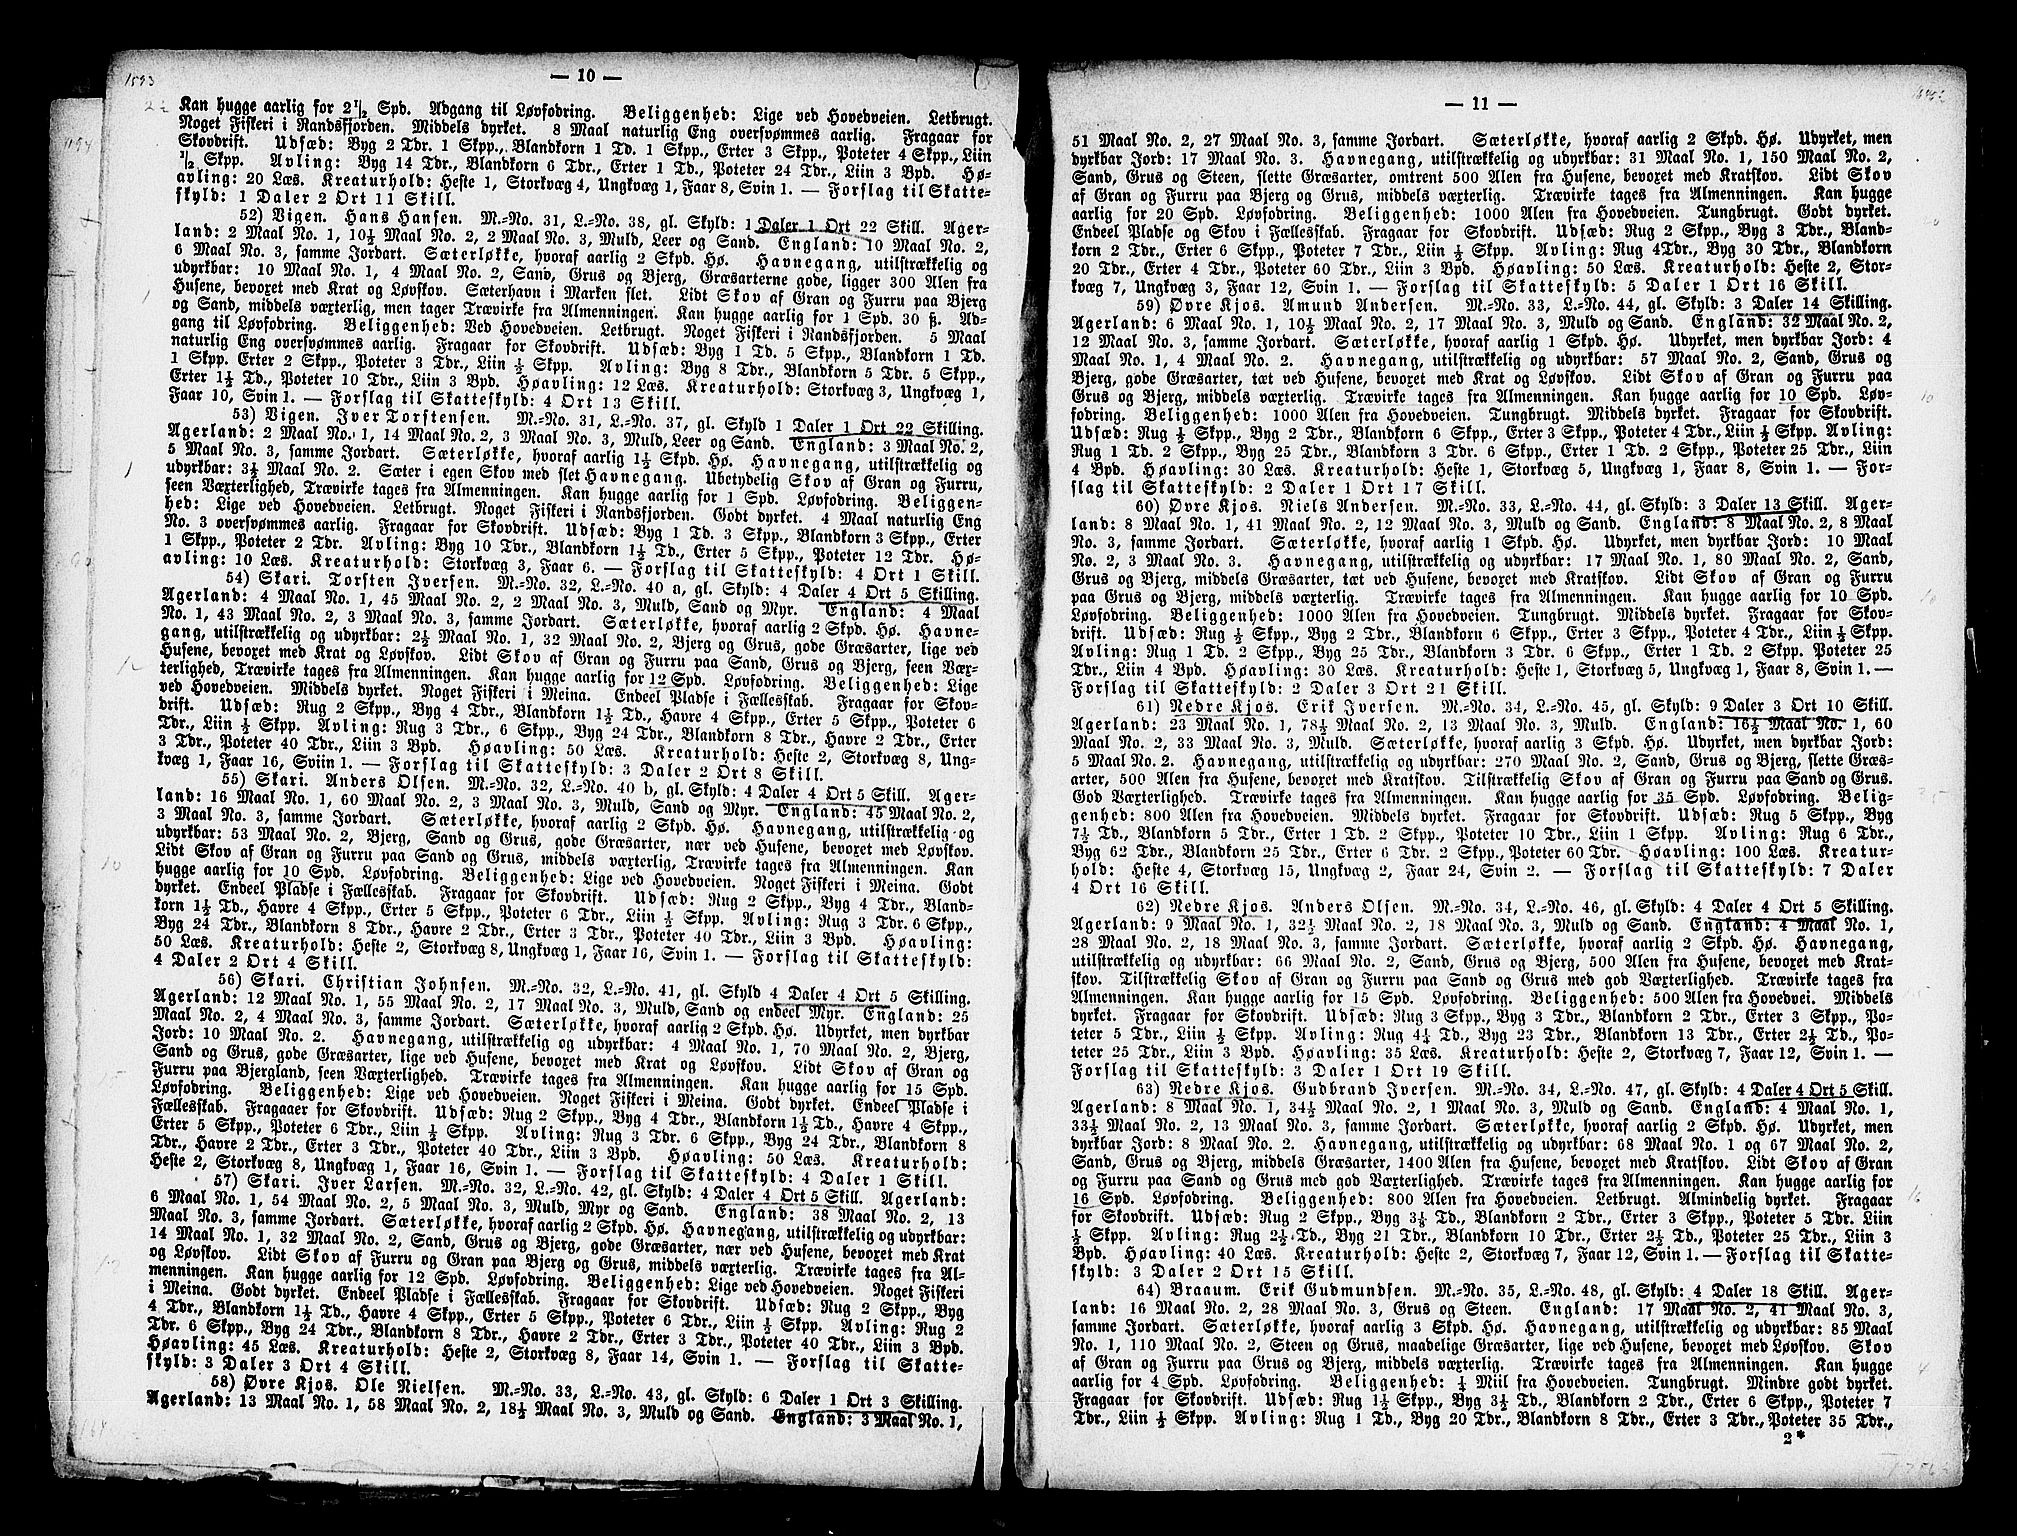 1593
— 10 —
2½
Kan hugge aarlig for 2 1/2 Spd. Adgang til Løvfodring. Beliggenhed: Lige ved Hovedveien. Letbrugt.
Noget Fiskeri i Randsfjorden. Middels dyrket. 8 Maal naturlig Eng oversvømmes aarlig. Fragaar for
Skovdrift. Udsæd: Byg 2 Tdr. 1 Skpp., Blandkorn 1 Td. 1 Skpp., Erter 3 Skpp., Poteter 4 Skpp., Liin
1/2 Skpp. Avling: Byg 14 Tdr., Blandkorn 6 Tdr., Erter 1 Td., Poteter 24 Tdr., Liin 3 Bpd. Hø-
avling: 20 Læs. Kreaturhold: Heste 1, Storkvæg 4, Ungkvæg 1, Faar 8, Svin 1. — Forslag til Skatte-
skyld: 1 Daler 2 Ort 11 Skill.
52) Vigen. Hans Hansen. M.-No. 31, L.-No. 38, gl. Skyld: 1 Daler 1 Ort 22 Skill. Ager-
land: 2 Maal No. 1, 10½ Maal No. 2, 2 Maal No. 3, Muld, Leer og Sand. England: 10 Maal No. 2,
6 Maal No. 3, samme Jordart. Sæterløkke, hvoraf aarlig 2 Skpd. Hø. Havnegang, utilstrækkelig og
udyrkbar: 10 Maal No. 1, 4 Maal No. 2, Sand, Grus og Bjerg, Græsarterne gode, ligger 300 Alen fra
Husene, bevoxet med Krat og Løvskov. Sæterhavn i Marken slet. Lidt Skov af Gran og Furru paa Bjerg
1
og Sand, middels væxterlig, men tager Trævirke fra Almenningen. Kan hugge aarlig for 1 Spd. 30 ß. Ad-
gang til Løvfodring. Beliggenhed: Ved Hovedveien. Letbrugt. Noget Fiskeri i Randsfjorden. 5 Maal
naturlig Eng oversvømmes aarlig. Fragaar for Skovdrift. Udsæd: Byg 1 Td. 5 Skpp., Blandkorn 1 Td.
1 Skpp. Erter 2 Skpp., Poteter 3 Tdr., Liin ½ Skpp. Avling: Byg 8 Tdr., Blandkorn 5 Tdr. 5 Skpp.,
Erter 1½ Td., Poteter 10 Tdr., Liin 3 Bpd. Høavling: 12 Læs. Kreaturhold: Storkvæg 3, Ungkvæg 1,
Faar 10, Svin 1. — Forslag til Skatteskyld: 4 Ort 13 Skill.
53) Vigen. Iver Torstensen. M.-No. 31, L.-No. 37, gl. Skyld 1 Daler 1 Ort 22 Skilling.
Agerland: 2 Maal No. 1, 14 Maal No. 2, 3 Maal No. 3, Muld, Leer og Sand. England: 3 Maal No. 2,
5 Maal No. 3, samme Jordart. Sæterløkke, hvoraf aarlig 1½ Skpd. Hø. Havnegang, utilstrækkelig og
1
udyrkbar: 3½ Maal No. 2. Sæter i egen Skov med slet Havnegang. Ubetydelig Skov af Gran og Furru,
seen Væxterlighed, Trævirke tages fra Almenningen. Kan hugge aarlig for 1 Spd. Løvfodring. Beliggen-
hed: Lige ved Hovedveien. Letbrugt. Noget Fiskeri i Randsfjorden. Godt dyrket. 4 Maal naturlig Eng
No. 3 oversvømmes aarlig. Fragaar for Skovdrift. Udsæd: Byg 1 Td. 3 Skpp., Blandkorn 3 Skpp., Erter
1 Skpp., Poteter 2 Tdr. Avling: Byg 10 Tdr., Blandkorn 1½ Td., Erter 5 Skpp., Poteter 12 Tdr. Hø-
avling: 10 Læs. Kreaturhold: Storkvæg 3, Faar 6. — Forslag til Skatteskyld: 4 Ort 1 Skill.
54) Skari. Torsten Iversen. M.-No. 32, L.-No. 40 a, gl. Skyld: 4 Daler 4 Ort 5 Skilling.
Agerland: 4 Maal No. 1, 45 Maal No. 2, 2 Maal No. 3, Muld, Sand og Myr. England: 4 Maal
No. 1, 43 Maal No. 2, 3 Maal No. 3, samme Jordart. Sæterløkke, hvoraf aarlig 2 Skpd. Hø. Havne-
gang, utilstrækkelig og udyrkbar: 2½ Maal No. 1, 32 Maal No. 2, Bjerg og Grus, gode Græsarter, lige ved
Husene, bevoxet med Krat og Løvskov. Lidt Skov af Gran og Furru paa Sand, Grus og Bjerg, seen Væx-
12
terlighed, Trævirke tages fra Almenningen. Kan hugge aarlig for 12 Spd. Løvfodring. Beliggenhed: Lige
ved Hovedveien. Middels dyrket. Noget Fiskeri i Meina. Endeel Pladse i Fællesskab. Fragaar for Skov-
drift. Udsæd: Rug 2 Skpp., Byg 4 Tdr., Blandkorn 1½ Td., Havre 4 Skpp., Erter 5 Skpp., Poteter 6
Tdr., Liin ½ Skpp. Avling: Rug 3 Tdr., 6 Skpp., Byg 24 Tdr., Blandkorn 8 Tdr., Havre 2 Tdr., Erter
3 Tdr., Poteter 40 Tdr., Liin 3 Bpd. Høavling: 50 Læs. Kreaturhold: Heste 2, Storkvæg 8, Ung-
kvæg 1, Faar 16, Sviin 1. — Forslag til Skatteskyld: 3 Daler 2 Ort 8 Skill.
55) Skari. Anders Olsen. M.-No. 32, L.-No. 40 b, gl. Skyld: 4 Daler 4 Ort 5 Skill. Ager-
land: 16 Maal No. 1, 60 Maal No. 2, 3 Maal No. 3, Muld, Sand og Myr. England: 45 Maal No. 2,
3 Maal No. 3, samme Jordart. Sæterløkke, hvoraf aarlig 2 Skpd. Hø. Havnegang, utilstrækkelig og
udyrkbar: 53 Maal No. 2, Bjerg, Sand og Grus, gode Græsarter, nær ved Husene, bevoxet med Løvskov.
10
Lidt Skov af Gran og Furru paa Sand og Grus, middels væxterlig, Trævirke tages fra Almenningen. Kan
hugge aarlig for 10 Spd. Løvfodring. Beliggenhed: Lige ved Hovedveien. Noget Fiskeri i Meina. Godt
dyrket. Endeel Pladse i Fællesskab. Fragaar for Skovdrift. Udsæd: Rug 2 Skpp., Byg 4 Tdr., Bland-
korn 1½ Td., Havre 4 Skpp., Erter 5 Skpp., Poteter 6 Tdr., Liin ½ Skpp. Avling: Rug 3 Tdr. 6 Skpp.,
Byg 24 Tdr., Blandkorn 8 Tdr., Havre 2 Tdr., Erter 3 Tdr., Poteter 40 Tdr., Liin 3 Bpd. Høavling:
50 Læs. Kreaturhold: Heste 2, Storkvæg 8, Ungkvæg 1, Faar 16, Svin 1. — Forslag til Skatteskyld:
4 Daler 2 Ort 4 Skill.
56) Skari. Christian Johnsen. M.-No. 32, L.-No. 41, gl. Skyld 4 Daler 4 Ort 5 Skilling.
Agerland: 12 Maal No. 1, 55 Maal No. 2, 17 Maal No. 3, Muld, Sand og endeel Myr. England: 25
Maal No. 2, 4 Maal No. 3, samme Jordart. Sæterløkke, hvoraf aarlig 2 Skpd. Hø. Udyrket, men dyrkbar
Jord: 10 Maal No. 2. Havnegang, utilstrækkelig og udyrkbar: 4 Maal No. 1, 70 Maal No. 2, Bjerg,
Sand og Grus, gode Græsarter, lige ved Husene, bevoxet med Krat og Løvskov. Lidt Skov af Gran og
15
Furru paa Bjergland, seen Væxterlighed. Trævirke tages fra Almenningen. Kan hugge aarlig for 15 Spd.
Løvfodring. Beliggenhed: Lige ved Hovedveien. Noget Fiskeri i Meina. Godt dyrket. Endeel Pladse i
Fællesskab. Fragaaer for Skovdrift. Udsæd: Rug 2 Skpp., Byg 4 Tdr., Blandkorn 1½ Td., Havre 4 Skpp.,
Erter 5 Skpp., Poteter 6 Tdr., Liin ½ Skpp. Avling: Rug 3 Tdr. 6 Skpp., Byg 24 Tdr., Blandkorn 8
Tdr., Havre 2 Tdr., Erter 3 Tdr., Poteter 40 Tdr., Liin 3 Bpd. Høavling: 50 Læs. Kreaturhold:
Heste 2, Storkvæg 8, Ungkvæg 1, Faar 16, Svin 1. — Forslag til Skatteskyld: 4 Daler 1 Skill.
57) Skari. Iver Larsen. M.-No. 32, L.-No. 42, gl. Skyld: 4 Daler 4 Ort 5 Skill. Agerland:
6 Maal No. 1, 54 Maal No. 2, 5 Maal No. 3, Muld, Myr og Sand. England: 38 Maal No. 2, 13
Maal No. 3, samme Jordart. Sæterløkke, hvoraf aarlig 2 Skpd. Hø. Havnegang, utilstrækkelig og udyrkbar:
14 Maal No. 1, 32 Maal No. 2, Sand, Grus og Bjerg, gode Græsarter, nær ved Husene, bevoxet med Krat
12
og Løvskov. Lidt Skov af Furru og Gran paa Bjerg og Grus, middels væxterlig. Trævirke tages fra Al-
menningen. Kan hugge aarlig for 12 Spd. Løvfodring. Beliggenhed: Lige ved Hovedveien. Noget Fiskeri
i Meina. Godt dyrket. Endeel Pladse i Fællesskab. Fragaar for Skovdrift. Udsæd: Rug 2 Skpp., Byg
4 Tdr., Blandkorn 1½ Td., Havre 4 Skpp., Erter 5 Skpp., Poteter 6 Tdr., Liin ½ Skpp. Avling: Rug 2
Tdr. 6 Skpp., Byg 24 Tdr., Blandkorn 8 Tdr., Havre 2 Tdr., Erter 3 Tdr., Poteter 40 Tdr., Liin 3 Bpd.
Høavling: 45 Læs. Kreaturhold: Heste 2, Storkvæg 8, Faar 14, Svin 1. — Forslag til Skatte-
skyld: 3 Daler 3 Ort 4 Skill.
58) Øvre Kjos. Ole Nielsen. M.-No. 33, L.-No. 43, gl. Skyld: 6 Daler 1 Ort 3 Skilling.
Agerland: 13 Maal No. 1, 58 Maal No. 2, 18½ Maal No. 3, Muld og Sand. England: 3 Maal No. 1,
— 11 —
51 Maal No. 2, 27 Maal No. 3, samme Jordart. Sæterløkke, hvoraf aarlig 2 Skpd. Hø. Udyrket, men
dyrkbar Jord: 17 Maal No. 3. Havnegang, utilstrækkelig og udyrkbar: 31 Maal No. 1, 150 Maal No. 2,
Sand, Grus og Steen, slette Græsarter, omtrent 500 Alen fra Husene, bevoxet med Kratskov. Lidt Skov
af Gran og Furru paa Bjerg og Grus, middels væxterlig. Trævirke tages fra Almenningen. Kan hugge
aarlig for 20 Spd. Løvfodring. Beliggenhed: 1000 Alen fra Hovedveien. Tungbrugt. Godt dyrket.
20
Endeel Pladse og Skov i Fællesskab. Fragaar for Skovdrift. Udsæd: Rug 2 Skpp., Byg 3 Tdr., Bland-
korn 2 Tdr., Erter 6 Skpp., Poteter 7 Tdr., Liin ½ Skpp. Avling: Rug 4 Tdr., Byg 30 Tdr., Blandkorn
20 Tdr., Erter 4 Tdr., Poteter 60 Tdr., Liin 3 Bpd. Høavling: 50 Læs. Kreaturhold: Heste 2, Stor-
kvæg 7, Ungkvæg 3, Faar 12, Svin 1. — Forslag til Skatteskyld: 5 Daler 1 Ort 16 Skill.
59) Øvre Kjos. Amund Andersen. M.-No. 33, L.-No. 44, gl. Skyld: 3 Daler 14 Skilling.
Agerland: 6 Maal No. 1, 10½ Maal No. 2, 17 Maal No. 3, Muld og Sand. England: 32 Maal No. 2,
12 Maal No. 3, samme Jordart. Sæterløkke, hvoraf aarlig 1 Skpd. Hø. Udyrket, men dyrkbar Jord: 4
Maal No. 1, 4 Maal No. 2. Havnegang, utilstrækkelig og udyrkbar: 57 Maal No. 2, Sand, Grus og
Bjerg, gode Græsarter, tæt ved Husene, bevoxet med Krat og Løvskov. Lidt Skov af Gran og Furru paa
Grus og Bjerg, middels væxterlig. Trævirke tages fra Almenningen. Kan hugge aarlig for 10 Spd. Løv-
10
fodring. Beliggenhed: 1000 Alen fra Hovedveien. Tungbrugt. Middels dyrket. Fragaar for Skovdrift.
Udsæd: Rug ½ Skpp., Byg 2 Tdr., Blandkorn 6 Skpp., Erter 3 Skpp., Poteter 4 Tdr., Liin ½ Skpp. Avling:
Rug 1 Td. 2 Skpp., Byg 25 Tdr., Blandkorn 3 Tdr. 6 Skpp., Erter 1 Td. 2 Skpp., Poteter 25 Tdr., Liin
4 Bpd. Høavling: 30 Læs. Kreaturhold: Heste 1, Storkvæg 5, Ungkvæg 1, Faar 8, Svin 1. — For-
slag til Skatteskyld: 2 Daler 1 Ort 17 Skill.
60) Øvre Kjos. Niels Andersen. M.-No. 33, L.-No. 44, gl. Skyld: 3 Daler 13 Skill. Ager-
land: 8 Maal No. 1, 41 Maal No. 2, 12 Maal No. 3, Muld og Sand. England: 8 Maal No. 2, 8 Maal
No. 3, samme Jordart. Sæterløkke, hvoraf aarlig 1 Skpd. Hø. Udyrket, men dyrkbar Jord: 10 Maal
No. 2, 3 Maal No. 3. Havnegang, utilstrækkelig og udyrkbar: 17 Maal No. 1, 80 Maal No. 2, Sand,
Grus og Bjerg, middels Græsarter, tæt ved Husene, bevoxet med Kratskov. Lidt Skov af Gran og Furru
paa Grus og Bjerg, middels væxterlig. Trævirke tages fra Almenningen. Kan hugge aarlig for 10 Spd.
10
Løvfodring. Beliggenhed: 1000 Alen fra Hovedveien. Tungbrugt. Middels dyrket. Fragaar for Skov-
drift. Udsæd: Rug ½ Skpp., Byg 2 Tdr., Blandkorn 6 Skpp., Erter 3 Skpp., Poteter 4 Tdr., Liin ½ Skpp.
Avling: Rug 1 Td. 2 Skpp., Byg 25 Tdr., Blandkorn 3 Tdr. 6 Skpp., Erter 1 Td. 2 Skpp. Poteter 25
Tdr., Liin 4 Bpd. Høavling: 30 Læs. Kreaturhold: Heste 1, Storkvæg 5, Ungkvæg 1, Faar 8, Svin 1. —
Forslag til Skatteskyld: 2 Daler 3 Ort 21 Skill.
61) Nedre Kjos. Erik Iversen. M.-No. 34, L.-No. 45, gl. Skyld: 9 Daler 3 Ort 10 Skill.
Agerland: 23 Maal No. 1, 78½ Maal No. 2, 13 Maal No. 3, Muld. England: 16½ Maal No. 1, 60
Maal No. 2, 33 Maal No. 3, Muld. Sæterløkke, hvoraf aarlig 3 Skpd. Hø. Udyrket, men dyrkbar Jord:
5 Maal No. 2. Havnegang, utilstrækkelig og udyrkbar: 270 Maal No. 2, Sand, Grus og Bjerg, slette Græs-
arter, 500 Alen fra Husene, bevoxet med Kratskov. Tilstrækkelig Skov af Gran og Furru paa Sand og Grus.
God Væxterlighed. Trævirke tages fra Almenningen. Kan hugge aarlig for 35 Spd. Løvfodring. Belig-
35
genhed: 800 Alen fra Hovedveien. Middels dyrket. Fragaar for Skovdrift. Udsæd: Rug 5 Skpp., Byg
7½ Td., Blandkorn 5 Tdr., Erter 1 Td. 2 Skpp., Poteter 10 Tdr., Liin 1 Skpp. Avling: Rug 6 Tdr.,
Byg 62 Tdr., Blandkorn 25 Tdr., Erter 6 Tdr. 2 Skpp., Poteter 60 Tdr. Høavling: 100 Læs. Kreatur-
hold: Heste 4, Storkvæg 15, Ungkvæg 2, Faar 24, Svin 2. — Forslag til Skatteskyld: 7 Daler
4 Ort 16 Skill.
62) Nedre Kjos. Anders Olsen. M.-No. 34, L.-No. 46, gl. Skyld: 4 Daler 4 Ort 5 Skilling.
Agerland: 9 Maal No. 1, 32½ Maal No. 2, 18 Maal No. 3, Muld og Sand. England: 4 Maal No. 1,
28 Maal No. 2, 18 Maal No. 3, samme Jordart. Sæterløkke, hvoraf aarlig 2 Skpd. Hø. Havnegang,
utilstrækkelig og udyrkbar: 66 Maal No. 2, Sand, Grus og Bjerg, 500 Alen fra Husene, bevoxet med Krat-
skov. Tilstrækkelig Skov af Gran og Furru paa Sand og Grus med god Væxterlighed. Trævirke tages fra
Almenningen. Kan hugge aarlig for 15 Spd. Løvfodring. Beliggenhed: 500 Alen fra Hovedvei. Middels
15
dyrket. Fragaar for Skovdrift. Udsæd: Rug 3 Skpp., Byg 3 Tdr., Blandkorn 2 Tdr., Erter 3 Skpp., Po-
teter 5 Tdr., Liin ½ Skpp. Avling: Rug 4¼ Td., Byg 23 Tdr., Blandkorn 13 Tdr., Erter 2½ Td., Po-
teter 25 Tdr., Liin 3 Bpd. Høavling: 35 Læs. Kreaturhold: Heste 2, Storkvæg 7, Faar 12, Svin 1. —
Forslag til Skatteskyld: 3 Daler 1 Ort 19 Skill.
63) Nedre Kjos. Gudbrand Iversen. M.-No. 34, L.-No. 47, gl. Skyld: 4 Daler 4 Ort 5 Skill.
Agerland: 8 Maal No. 1, 34½ Maal No. 2, 1 Maal No. 3, Muld og Sand. England: 4 Maal No. 1,
33½ Maal No. 2, 13 Maal No. 3, samme Jordart. Sæterløkke, hvoraf aarlig 2 Skpd. Hø. Udyrket, men
dyrkbar Jord: 8 Maal No. 2. Havnegang, utilstrækkelig og udyrkbar: 68 Maal No. 1 og 67 Maal No. 2,
Sand, Grus og Bjerg, middels Græsarter, 1400 Alen fra Husene, bevoxet med Kratskov. Lidt Skov af Gran
og Furru paa Sand og Grus med god Væxterlighed. Trævirke tages fra Almenningen. Kan hugge aarlig for
16 Spd. Løvfodring. Beliggenhed: 800 Alen fra Hovedveien. Letbrugt. Almindelig dyrket. Fragaar
16
for Skovdrift. Udsæd: Rug 2 Skpp., Byg 3½ Td., Blandkorn 2 Tdr., Erter 3 Skpp., Poteter 5 Tdr. Liin
½ Skpp. Avling: Rug 2½ Td., Byg 21 Tdr., Blandkorn 10 Tdr., Erter 2½ Td., Poteter 25 Tdr., Liin 3
Bpd. Høavling: 40 Læs. Kreaturhold: Heste 2, Storkvæg 7, Faar 12, Svin 1. — Forslag til Skatte-
skyld: 3 Daler 2 Ort 15 Skill.
64) Braaum. Erik Gudmundsen. M.-No. 35, L.-No. 48, gl. Skyld: 4 Daler 18 Skill. Ager-
land: 16 Maal No. 2, 28 Maal No. 3, Grus og Steen. England: 17 Maal No. 2, 41 Maal No. 3,
samme Jordart. Sæterløkke, hvoraf aarlig 3 Skpd. Hø. Havnegang, utilstrækkelig og udyrkbar: 85 Maal
No. 1, 110 Maal No. 2, Steen og Grus, maadelige Græsarter, lige ved Husene, bevoxet med Løvskov. Skov
af Gran og Furru paa Grus og Bjerg, middels væxterlig. Trævirke tages fra Almenningen. Kan hugge
4
aarlig for 4 Spd. Løvfodring. Beliggenhed: ¼ Miil fra Hovedveien. Tungbrugt. Mindre godt dyrket.
Fragaar for Skovdrift. Udsæd: Rug 1½ Skpp., Byg 3½ Td., Blandkorn 2 Tdr., Erter 6 Skpp., Poteter 7
Tdr., Liin ½ Skpp. Avling: Rug 1 Td., Byg 20 Tdr., Blandkorn 8 Tdr., Erter 3 Tdr., Poteter 35 Tdr.,
2*